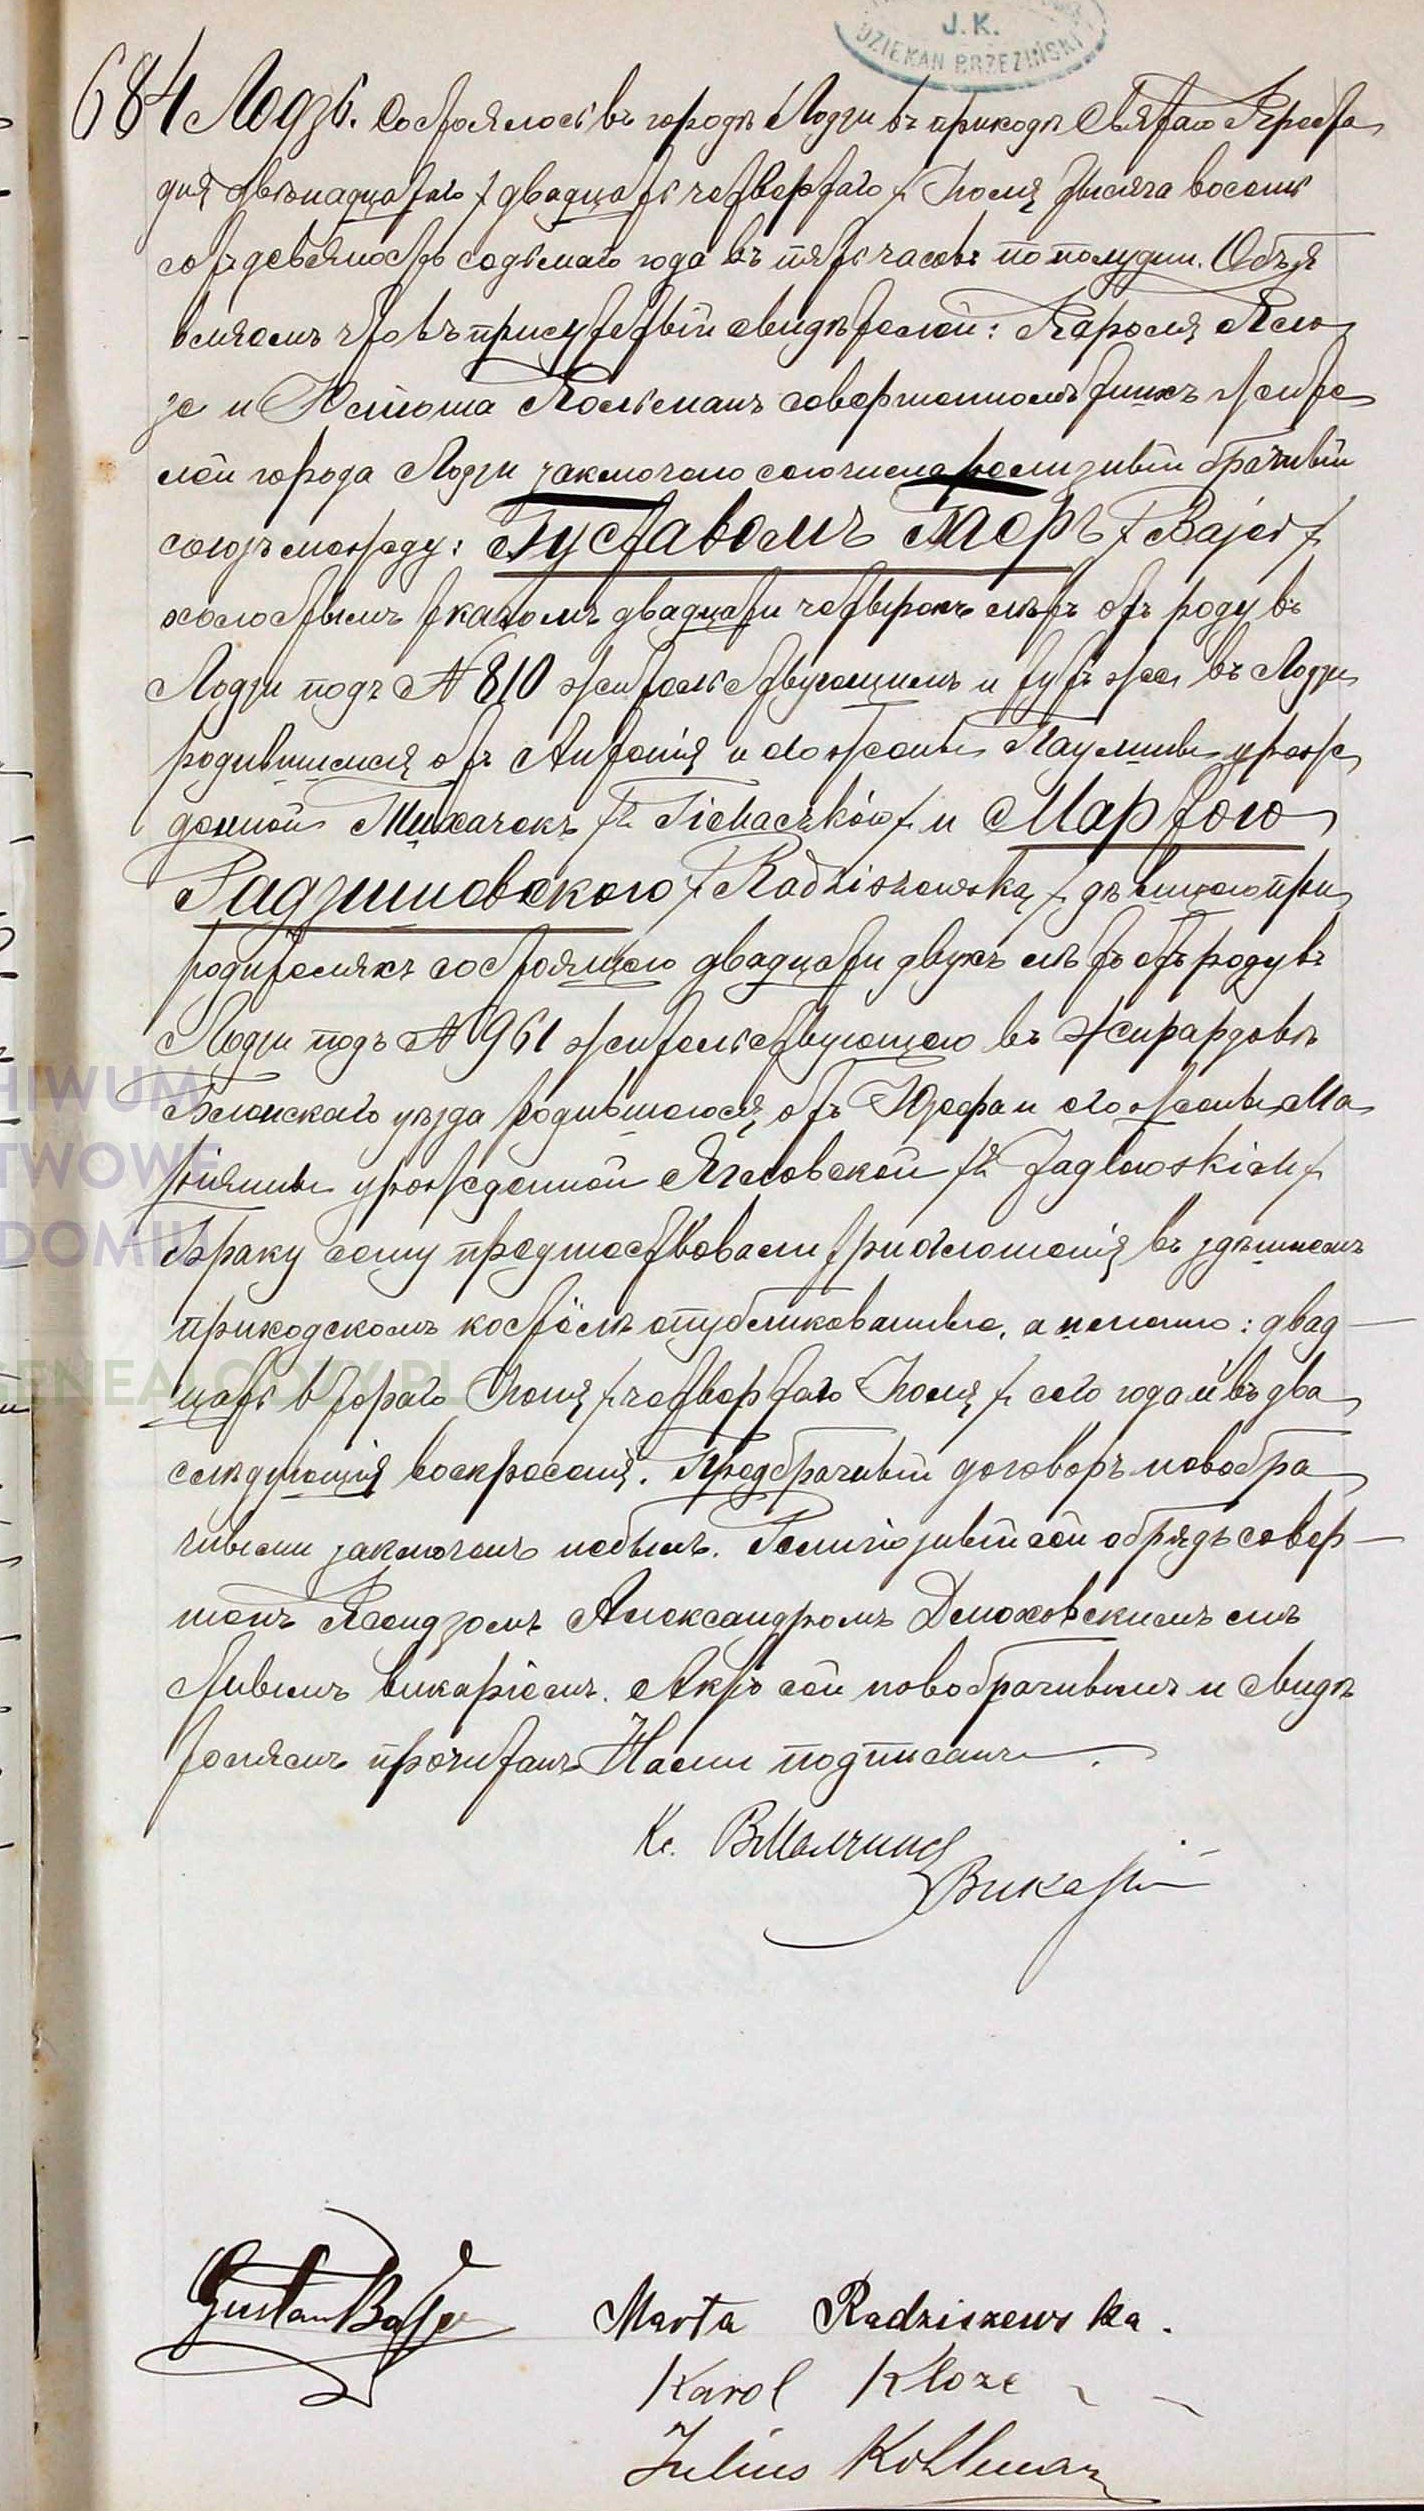 J. K.
DZIEKAN BRZEZIŃSKI
684 Лодзь. Состоялось въ городѣ Лодзи въ приходѣ Святаго Креста
дня двѣнадцатаго / двадцать четвертаго / Іюля тысяча восемь
сотъ девяносто седьмаго года въ пять часовъ по полудни. Объя
вляемъ что въ присутствіи свидѣтелей: Кароля Кло
зе и Юліюша Кольманъ совершеннолѣтнихъ жите
лей города Лодзи заключено сего числа религіозный брачный
союзъ между: Густавомъ Баеръ / Bajer /
холостымъ ткачомъ двадцати четырехъ лѣтъ отъ роду въ
Лодзи подъ № 810 жительствующимъ и тутъ же въ Лодзи
родившимся отъ Антонія и его жены Паулины урож
денной Тихачекъ / z Tichaczków / и Мартою
Радзишевскою / Radziszewską / дѣвицею при
родителяхъ состоящею двадцати двухъ лѣтъ отъ роду въ
Лодзи подъ № 961 жительствующею въ Жирардовѣ
Блонскаго уѣзда родившеюся отъ Юзефа и его жены Ма
ріянны урожденной Ягловской / z Jaglowskich /
Браку сему предшествовали три оглашенія въ здѣшнемъ
приходскомъ костёлѣ опубликованныя, а именно: двад
цать втораго Іюня / четвертаго Іюля / сего года и въ два
слѣдующія воскресенія. Предбрачный договоръ новобра
чными заключенъ небылъ. Религіозный сей обрядъ совер
шенъ Ксендзомъ Александромъ Дмоховскимъ мѣ
стнымъ викаріемъ. Актъ сей новобрачнымъ и свидѣ
телямъ прочитанъ Нами подписанъ.
Кс.
Викарій
HIWUM
TWOWE
DOMIU
GENEALODZY.PL
Gustav Bajer
Marta Radziszewska.
Karol Kloze
Julius Kollman